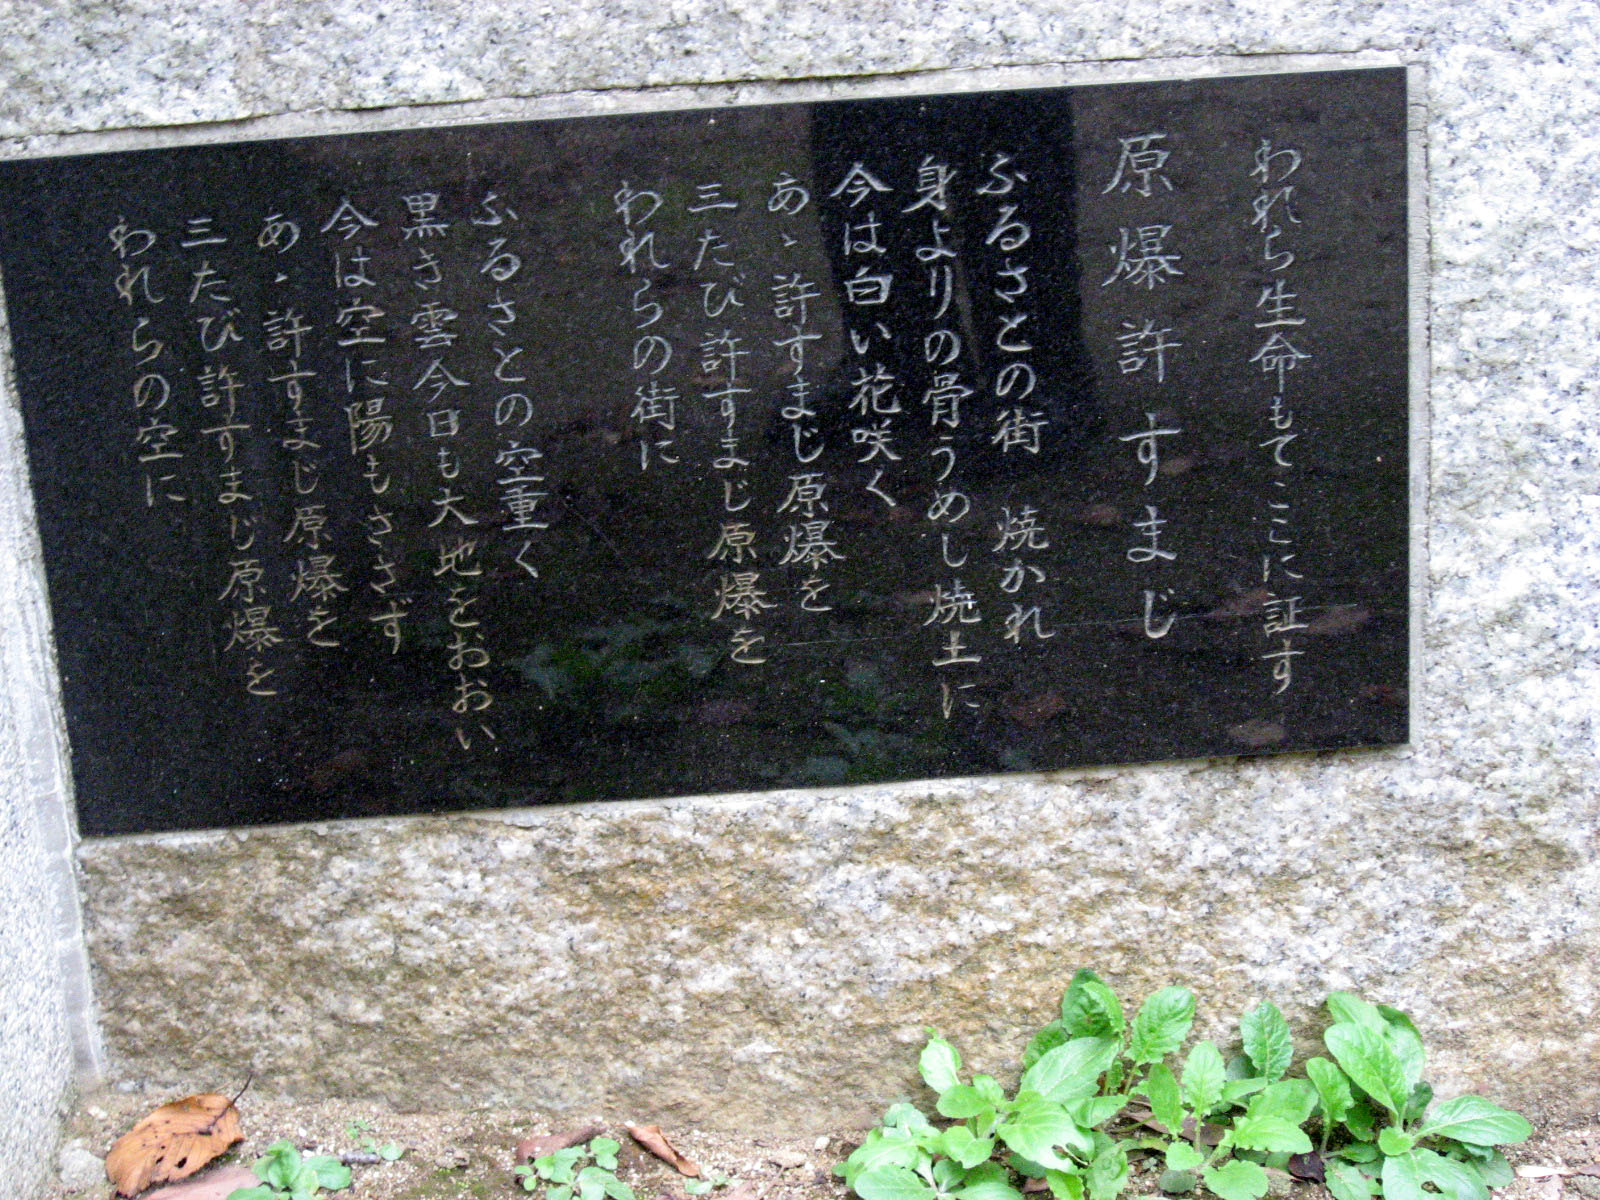 われら生命もてここに証す
原爆許すまじ
ふるさとの街 焼かれ
身よりの骨うめし焼土に
今は白い花咲く
あゝ許すまじ原爆を
三たび許すまじ原爆を
われらの街に
ふるさとの空重く
黒き雲今日も大地をおおい
今は空に陽もささず
あゝ許すまじ原爆を
三たび許すまじ原爆を
われらの空に